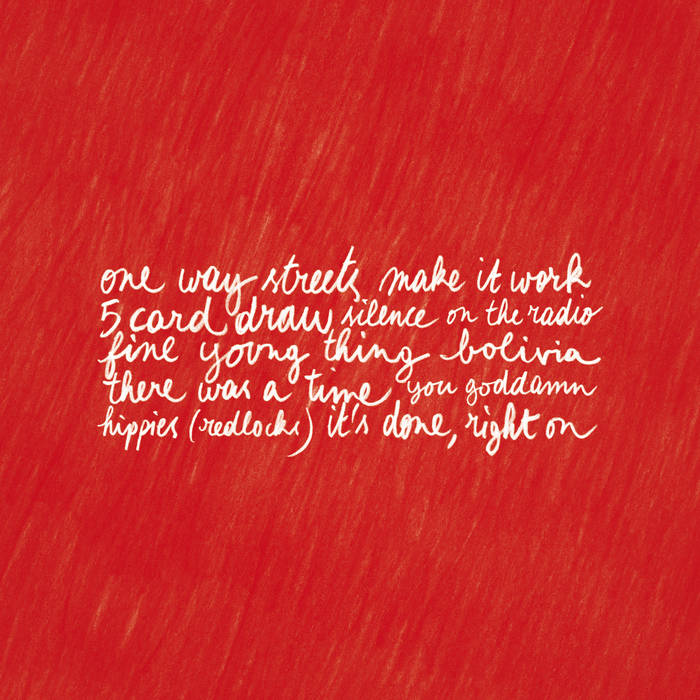 one way streets make it work
5 card draw silence on the radio
fine young thing bolivia
there was a time you goddamn
hippies (redlocks) it's done, right on